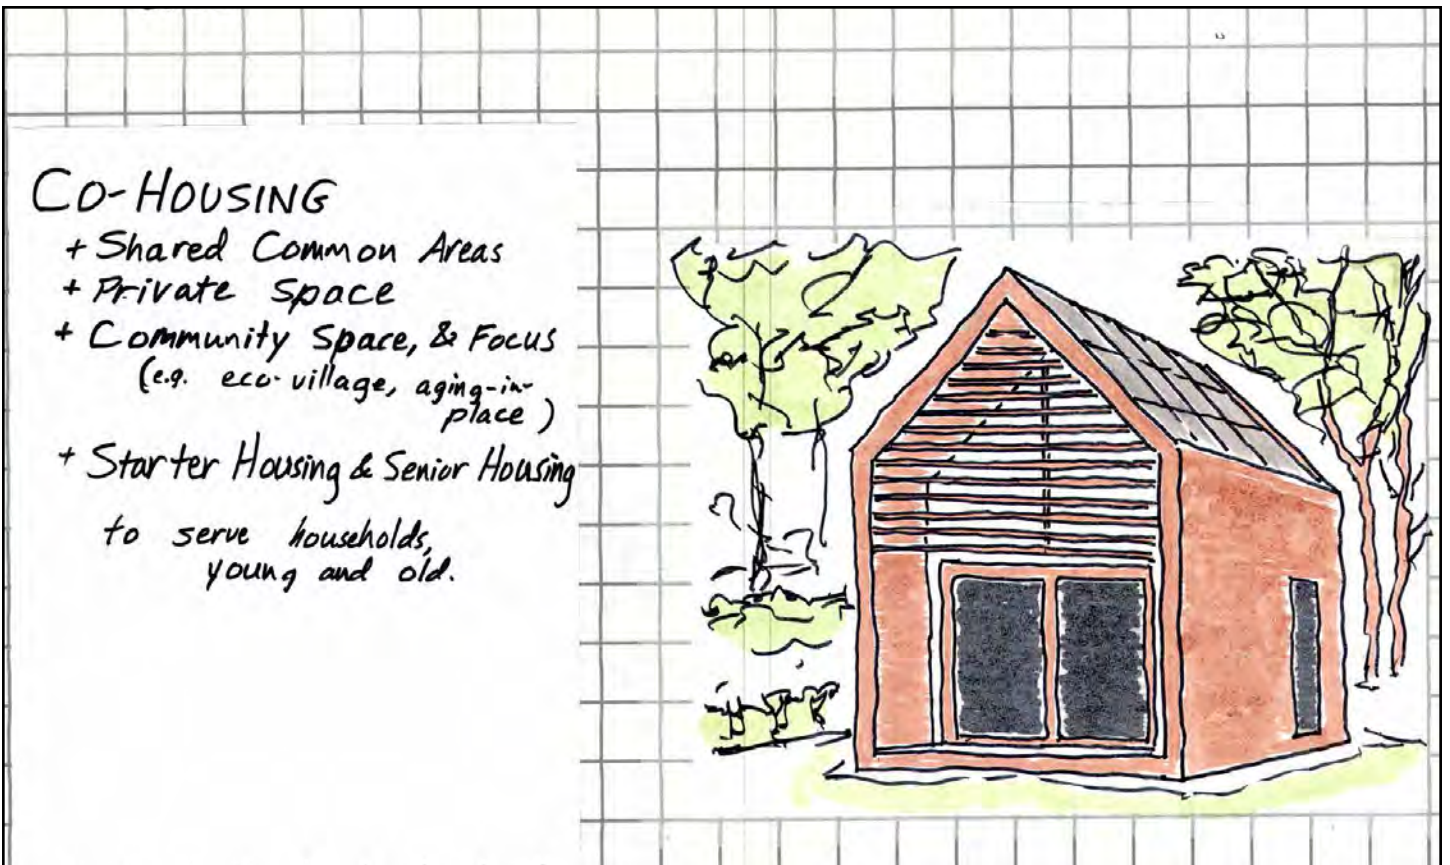 CO-HOUSING
+ Shared Common Areas
+ Private Space
+ Community Space, & Focus
(e.g. eco-village, aging-in-
place)
+ Starter Housing & Senior Housing
to serve households,
young and old.